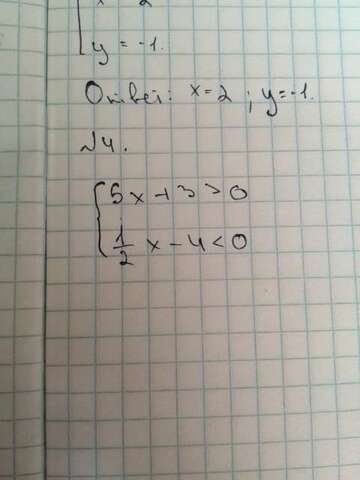 x = 2
y = -1.
Ответ: x=2; y=-1.
№4.
5x+3>0
1/2 x-4<0